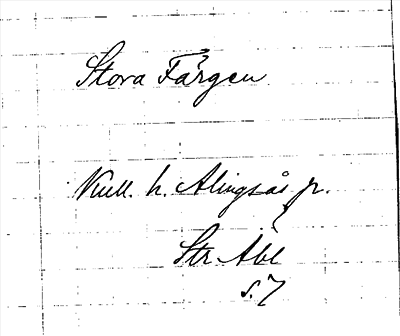 Stora Färgen
Kull. h. Alingsås jr.
Str. Åbl
s. 7